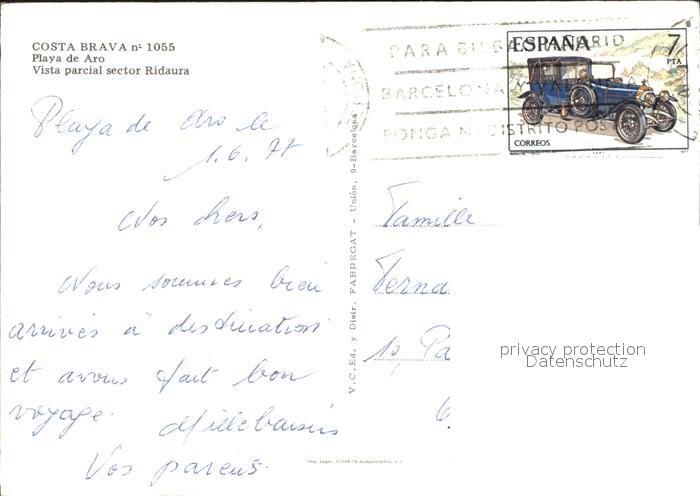 COSTA BRAVA nº 1055
Playa de Aro
Vista parcial sector Ridaura
Playa de Aro le
1.6.77
Nos chers,
Nous sommes bien
arrivés à destination
et avons fait bon
voyage. Mille baisers
Vos parents.
V.C. Ed. y Distr. FABREGAT - Unión, 9-Barcelona
PARA BILBAO MADRID
BARCELONA
PONGA Nº DISTRITO POSTAL
ESPAÑA 7
PTA
CORREOS
Famille
Ferna
10, Pa
6
privacy protection
Datenschutz